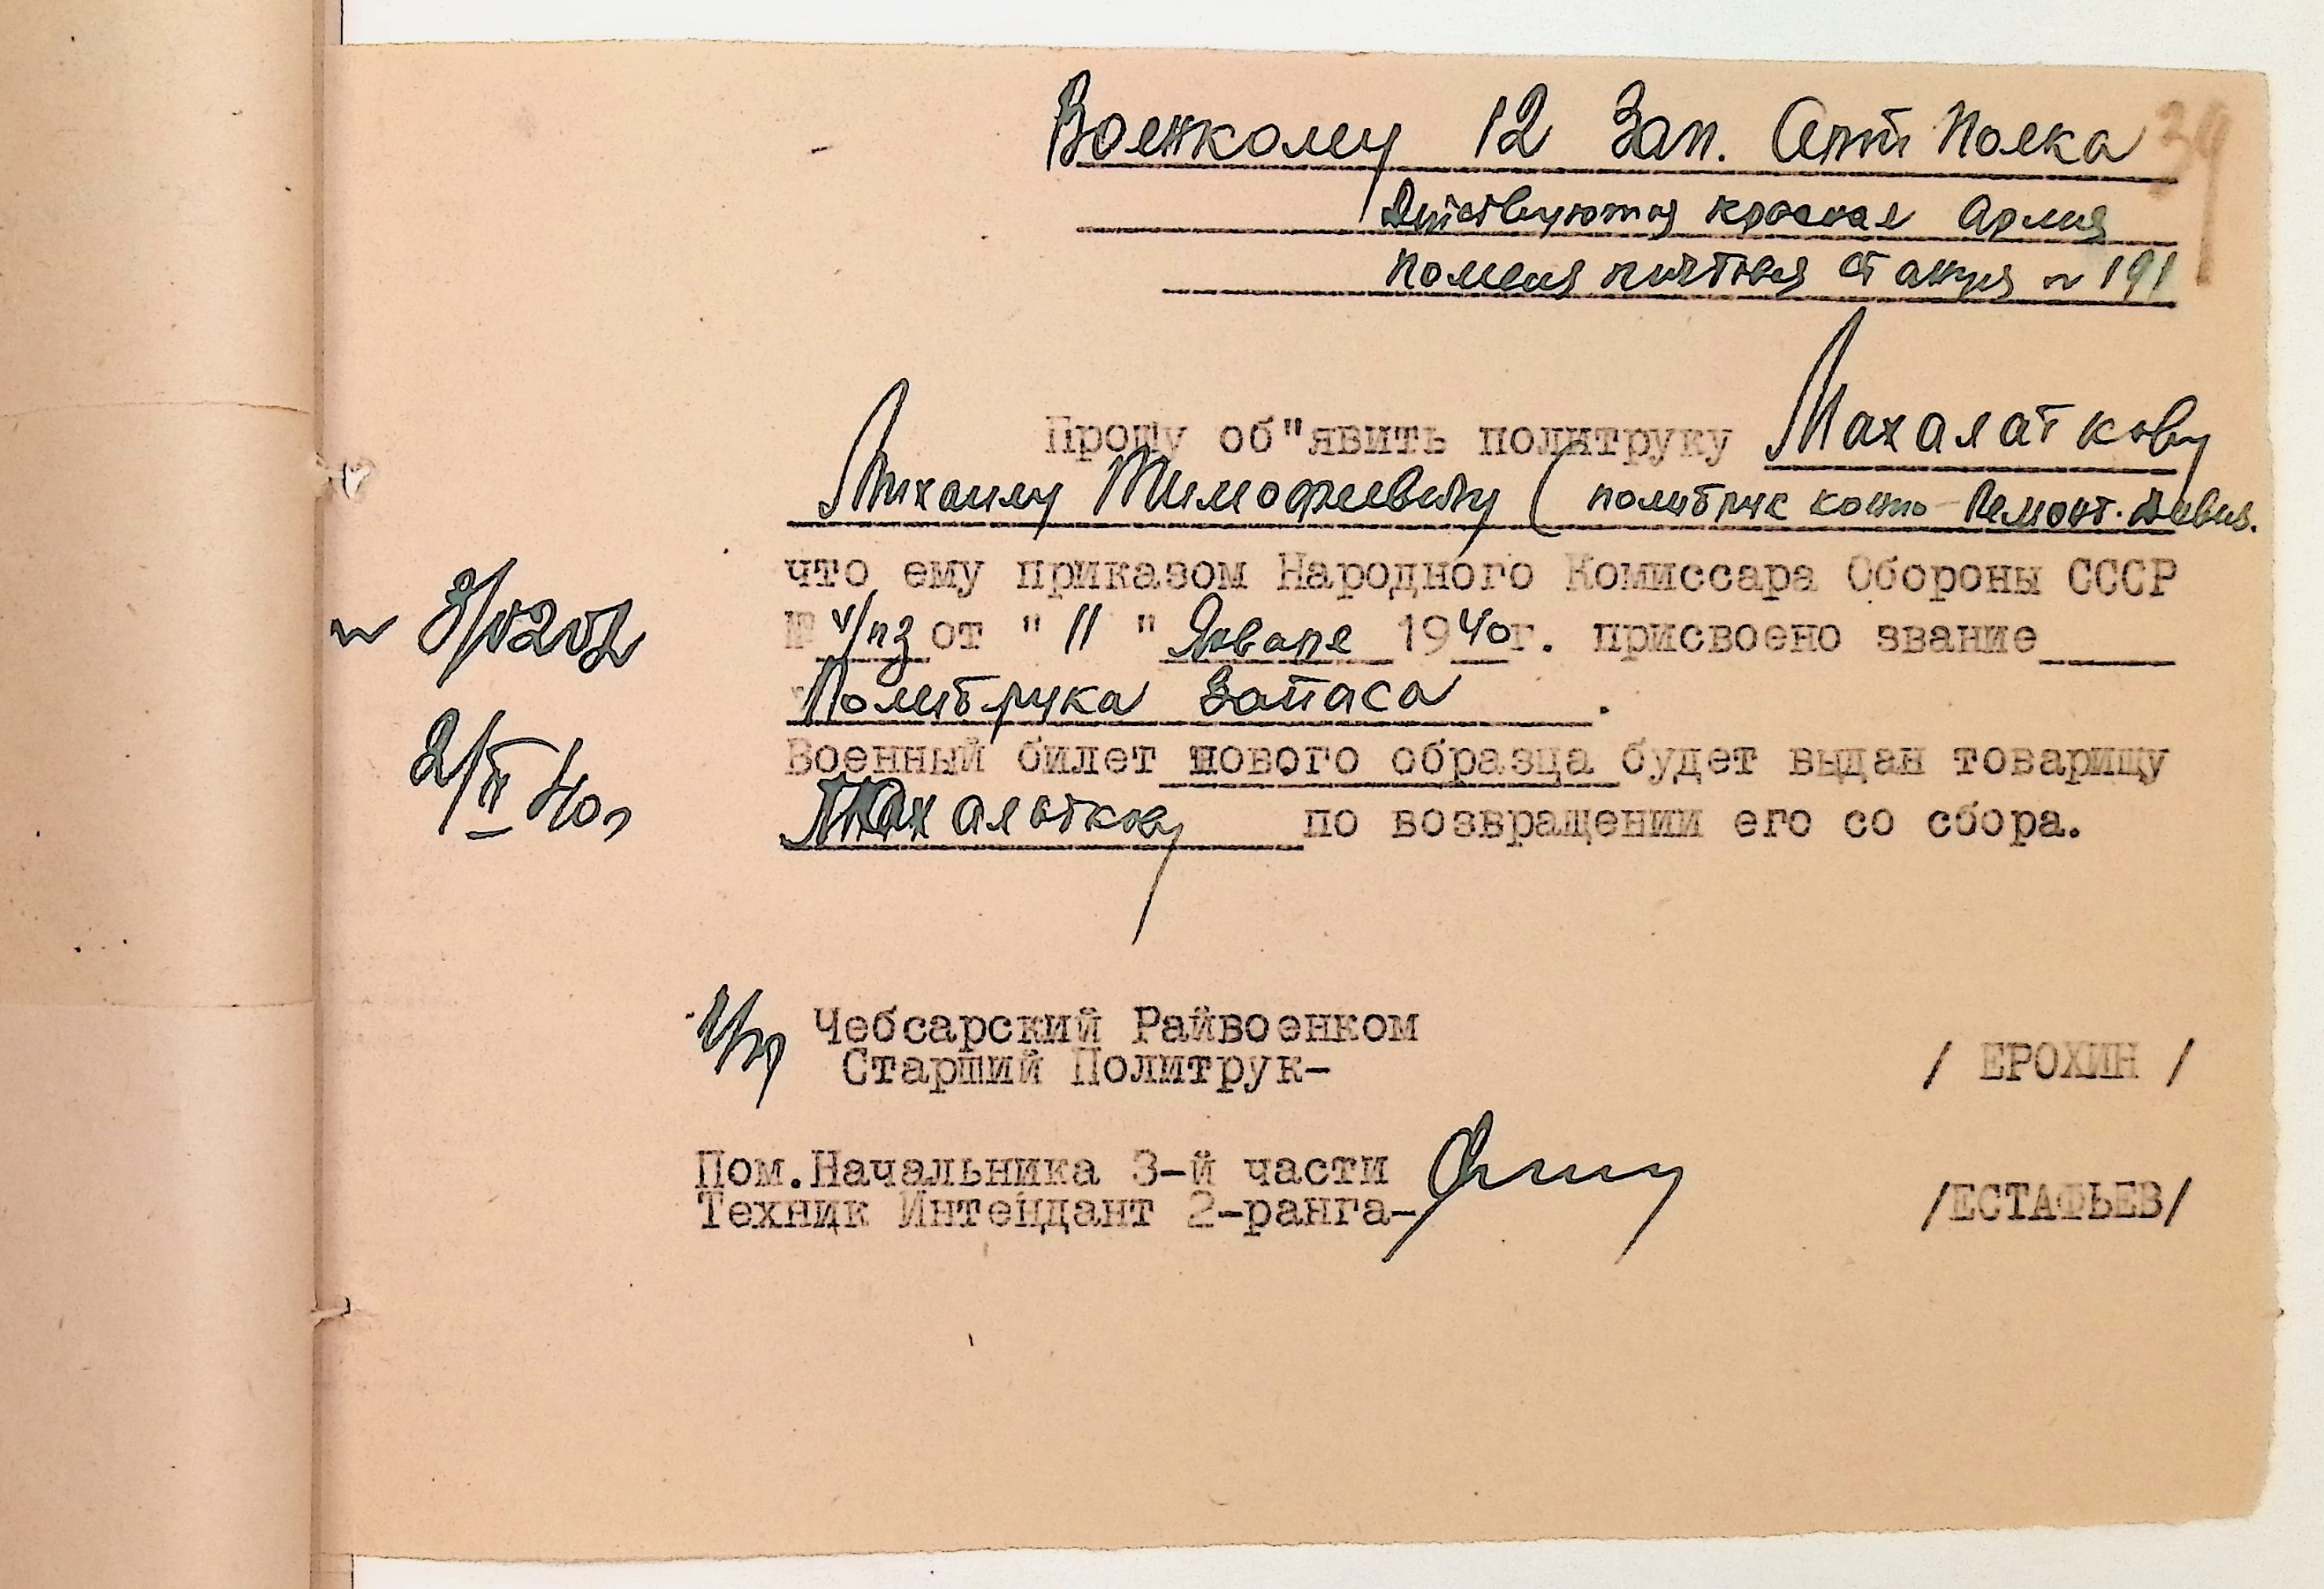 Военкому 12 Зап. Арт Полка
39
Действующая красная Армия
Полевая почтовая Станция № 191
Прошу об"явить политруку Махалаткову
Михаилу Тимофеевичу ( политрук конто-Ремонт. Дивиз.
что ему приказом Народного Комиссара Обороны СССР
№ 4/пз от " 11 " Января 1940г. присвоено звание
Политрука Запаса .
Военный билет нового образца будет выдан товарищу
Махалаткову по возвращении его со сбора.
№ 3/0202
2/II 40г
Чебсарский Райвоенком
Старший Политрук-
/ ЕРОХИН /
Пом.Начальника 3-й части
Техник Интендант 2-ранга-
/ЕСТАФЬЕВ/